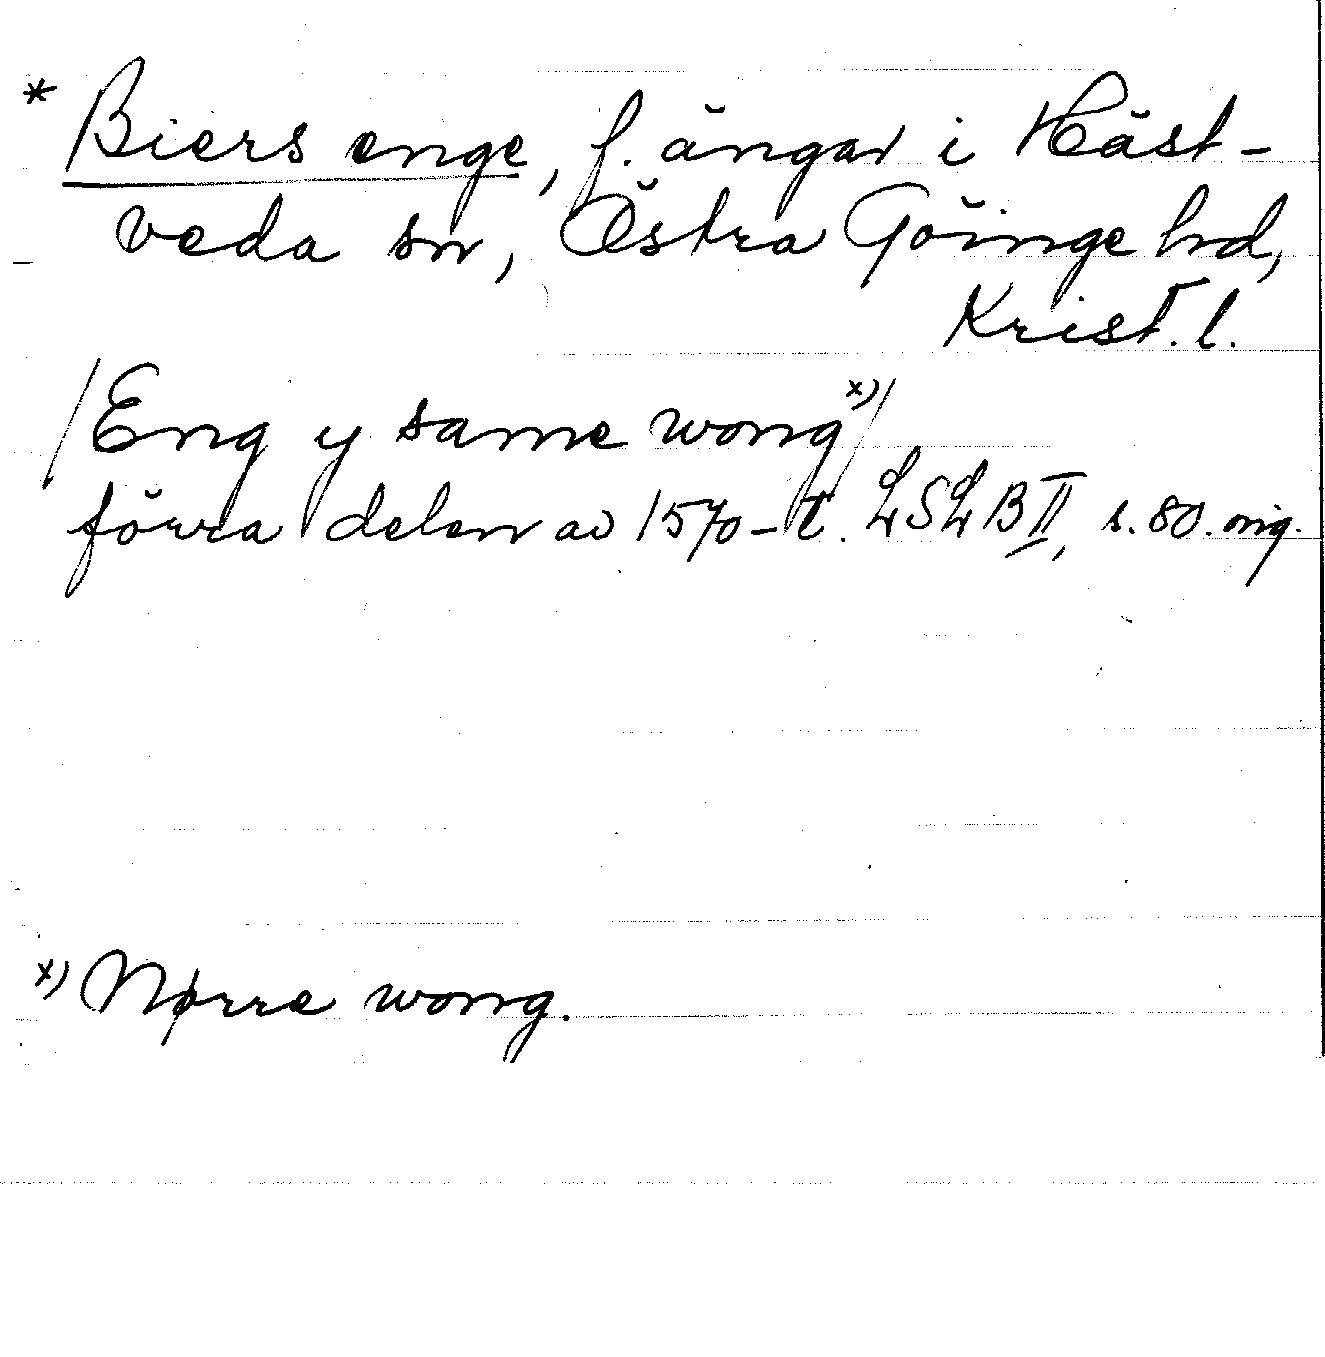 * Biers enge, f. ängar i Häst-
veda sn, Östra Göinge hd,
Krist. l.
/Eng y same wong x)/
förra delen av 1570-t. LSLB II, s. 80. orig.
x) Nørre wong.